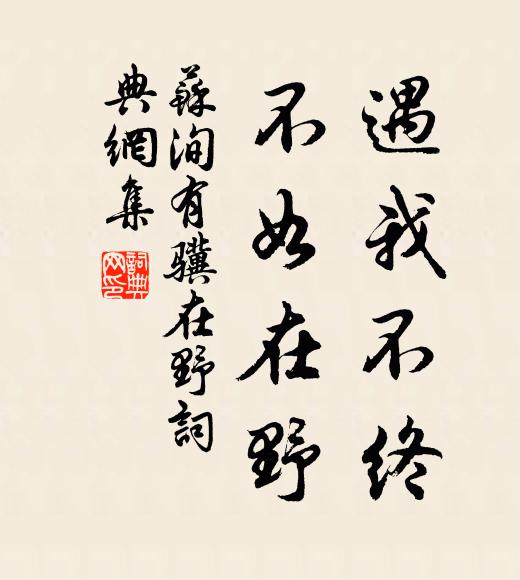 遇我不終
不如在野
蘇洵有驥在野詞
典網集
詞典網印